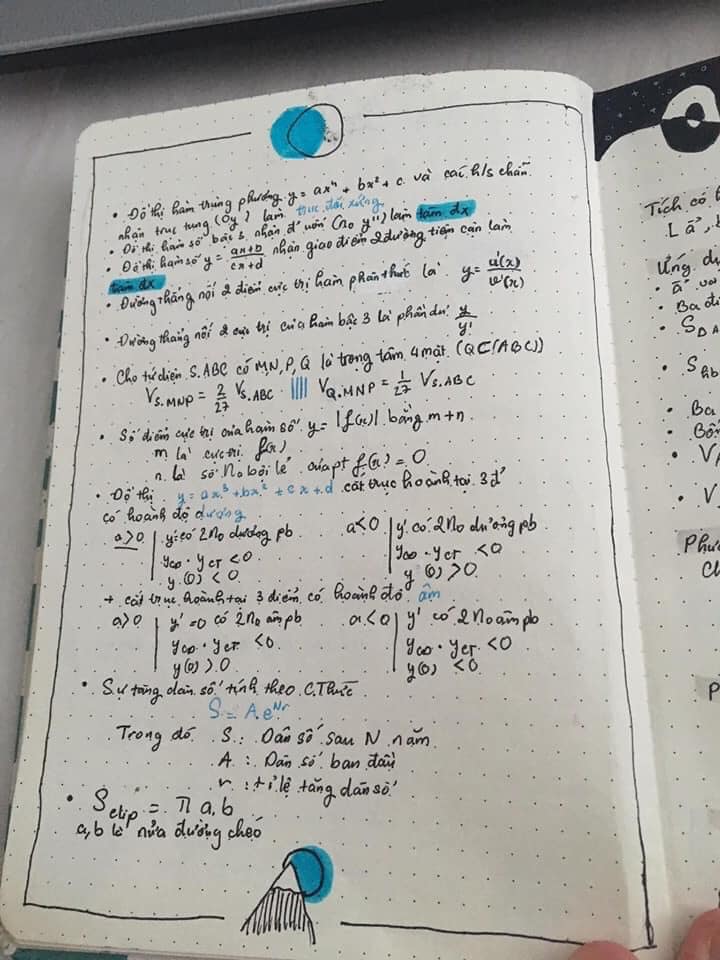 • Đồ thị hàm trùng phương y = ax⁴ + bx² + c và các h/s chẵn
nhận trục tung (Oy) làm trục đối xứng
• Đồ thị hàm số bậc 3 nhận đ' uốn (no y'') làm tâm đx
• Đồ thị hàm số y = (ax+b)/(cx+d) nhận giao điểm 2 đường tiệm cận làm
tâm đx
• Đường thẳng nối 2 điểm cực trị hàm phân thức là y = u'(x)/v'(x)
• Đường thẳng nối 2 cực trị của hàm bậc 3 là phần dư y/y'
• Cho tứ diện S.ABC có MN,P,Q là trọng tâm 4 mặt (Q⊂(ABC))
V S.MNP = 2/27 V S.ABC |||| V Q.MNP = 1/27 V S.ABC
• Số điểm cực trị của hàm số y = |f(x)| bằng m+n
m là cực trị f(x)
n là số no bội lẻ của pt f(x) = 0
• Đồ thị y = ax³ + bx² + cx + d cắt trục hoành tại 3 đ'
có hoành độ dương
a>0 | y' có 2 no dương pb a<0 | y' có 2 no dương pb
ycđ . yct < 0 ycđ . yct < 0
y(0) < 0 y(0) > 0
+ cắt trục hoành tại 3 điểm có hoành độ âm
a>0 | y' = 0 có 2 no âm pb a<0 | y' có 2 no âm pb
ycđ . yct < 0 ycđ . yct < 0
y(0) > 0 y(0) < 0
• Sự tăng dân số tính theo C.Thức
S = A.e^Nr
Trong đó S : Dân số sau N năm
A : Dân số ban đầu
r : tỉ lệ tăng dân số
• S elip = π a,b
a,b là nửa đường chéo
Tích có
Ứng dụ
• Ba đi
• S
• Ba
• Bốn
• V
• V
Phư